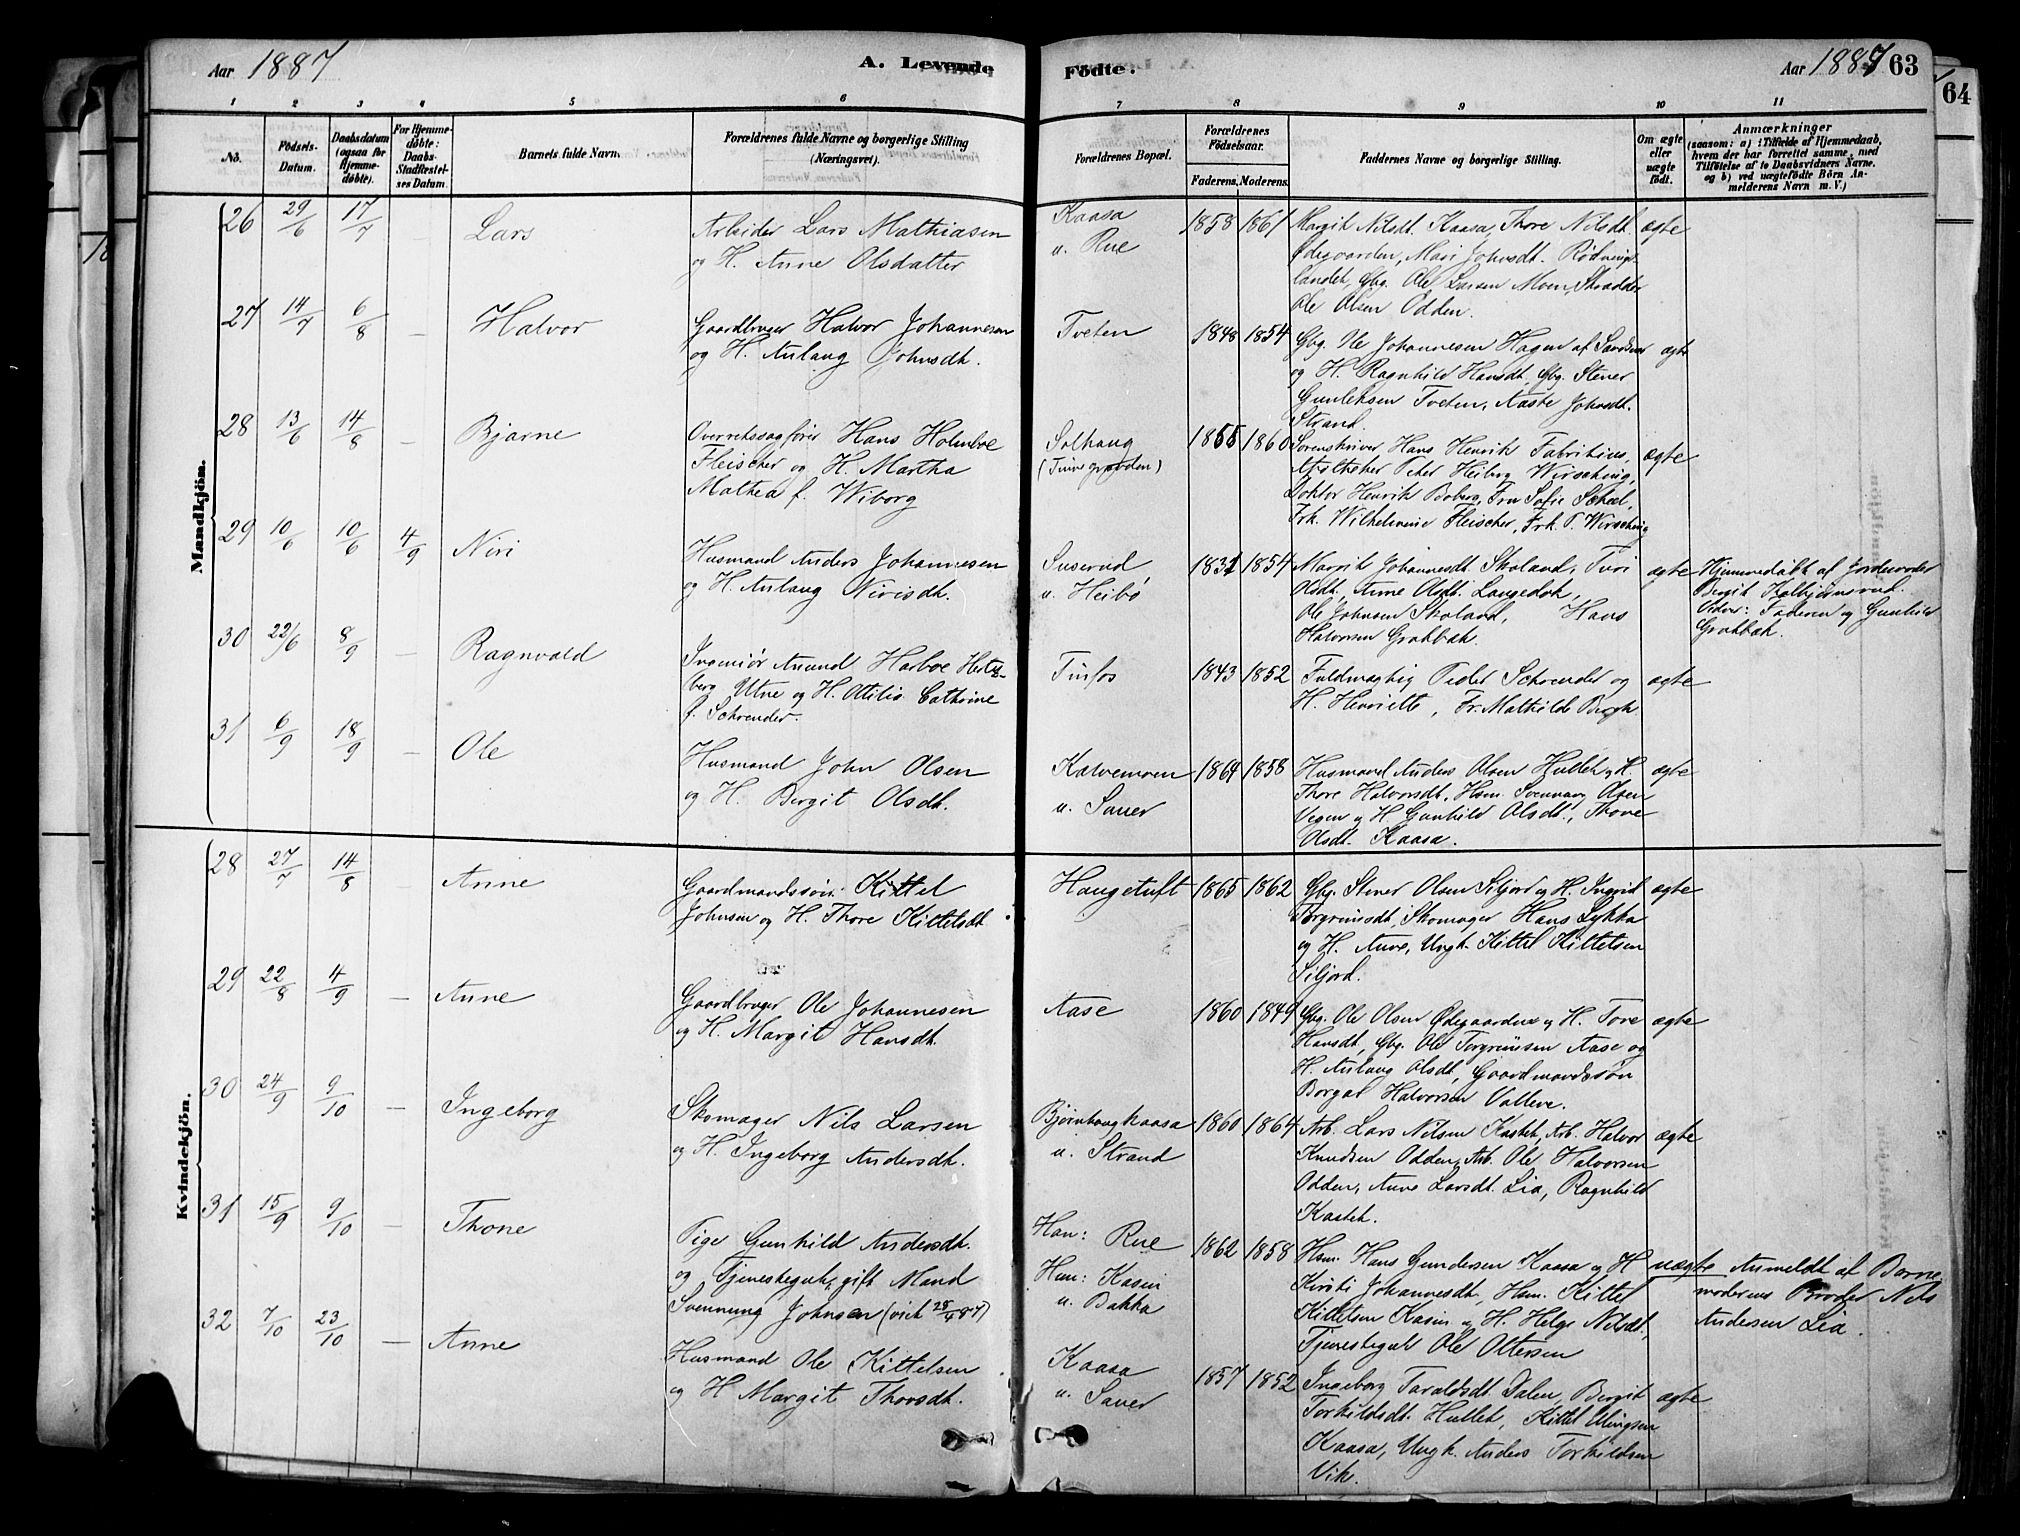 Aar 1887
A. Levende
Födte.
Aar 1887 63
64
1 2 3 4 5 6 7 8 9 10 11
No.
Födsels-Datum.
Daabsdatum (ogsaa for Hjemme-döbte).
For Hjemme-döbte: Daabs-Stadfæstel-ses Datum.
Barnets fulde Navn.
Forældrenes fulde Navne og borgerlige Stilling (Næringsvei).
Forældrenes Bopæl.
Forældrenes Födselsaar.
Faderens. Moderens.
Faddernes Navne og borgerlige Stilling.
Om ægte eller uægte födt.
Anmærkninger
(saasom: a) i Tilfælde af Hjemmedaab,
hvem der har forrettet samme, med
Tilföielse af to Daabsvidners Navne.
og b) ved uægtefödte Börn An-
melderens Navn m. V.)
Mandkjön.
26 29/6 17/7 – Lars
Arbeider Lars Mathiasen
og H. Anne Olsdatter
Kaasa
u. Rue
1858 1861
Margit Nilsdt. Kaasa, Thore Nilsdt.
Ødegaarden, Mari Johnsdt.
landet, Gbg. Ole Larsen Moen, Skrædder
Ole Olsen Odden.
ægte
27 14/7 6/8 – Halvor
Gaardbruger Halvor Johannesen
og H. Aslaug Johnsdt.
Tveten
1848 1854
Gbg. Ole Johannesen Hagen af
og H. Ragnhild Hansdt. Gbg. Stener
Gunleksen Tveten, Aaste Johnsdt.
Strand.
ægte
28 13/6 14/8 – Bjarne
Overretssagfører Hans Holmboe
Fleischer og H. Martha
Mathea f. Wiborg
Solhaug
(Tinnegrænden)
1855 1860
Sorenskriver Hans Henrik Fabritius,
Apotheker Peter Heiberg Wirsching,
Doktor Henrik Boberg, Fru Sofie Scheel,
Frk. Wilhelmine Fleischer, Frk. P. Wirsching
ægte
29 10/6 10/6 4/9 Niri
Husmand Anders Johannesen
og H. Aslaug Nirisdt.
Suserud
u. Heibø
1831 1854
Margit Johannesdt. Skoland, Turi
Olsdt., Anne Olsdt. Langedok,
Ole Johnsen Skoland, Hans
Halvorsen Grakbæk.
ægte
Hjemmedøbt af Jordemoder
Bergit Kolbjørnsrud.
Vidner: Faderen og Gunhild
Grakbæk.
30 22/6 8/9 – Ragnvald
Ingeniør Amund Harboe Hertz-
berg Utne og H. Otilia Cathrine
f. Schrøder.
Tinfos
1843 1852
Fuldmægtig Peder Schrøder og
H. Henriette, Fr. Mathilde Bergh
ægte
31 6/9 18/9 – Ole
Husmand John Olsen
og H. Bergit Olsdt.
Kalvemoen
u. Sauer
1864 1858
Husmand Anders Olsen Hullet og H.
Thore Halvorsdt. Hsm. Svennung Olsen
Vegen og H. Gunhild Olsdt., Thone
Olsdt. Kaasa.
ægte
Kvindekjön.
28 27/7 14/8 – Anne
Gaardmandssøn Kittel
Johnsen og H. Thore Kittelsdt
Haugetuft
1865 1862
Gbg. Stener Olsen Siljord og H. Ingrid
Torgrimsdt, Skomager Hans Lykka
og H. Anne, Ungk. Kittel Kittelsen
Siljord.
ægte
29 22/8 4/9 – Anne
Gaardbruger Ole Johannesen
og H. Margit Hansdt.
Aase
1860 1849
Gbg. Ole Olsen Ødegaarden og H. Tore
Hansdt, Gbg. Ole Torgrimsen Aase og
H. Aslaug Olsdt, Gaardmandssøn
Borgal Halvorsen Valleve.
ægte
30 24/9 9/10 – Ingeborg
Skomager Nils Larsen
og H. Ingeborg Andersdt.
Bjørnhaug Kaasa
u. Strand
1860 1864
Arb. Lars Nilsen Kastet, Arb. Halvor
Knudsen Odden, Arb. Ole Halvorsen
Odden, Anne Larsdt. Lia, Ragnhild
Kastet.
ægte
31 15/9 9/10 – Thone
Pige Gunhild Andersdt.
og Tjenestegut, gift Mand
Svennung Johnsen (viet 28/4 87)
Hun: Rue
Han: Kasin
u. Bakka
1862 1858
Hsm. Hans Gundersen Kaasa og H
Kirsti Johannesdt, Hsm. Kittel
Kittelsen Kasin og H. Helge Nilsdt.
Tjenestegut Ole Ottersen
uægte
Anmeldt af Barne-
moderens Broder Nils
Andersen Lia.
32 7/10 23/10 – Anne
Husmand Ole Kittelsen
og H Margit Thorsdt.
Kaasa
u. Sauer
1857 1852
Ingeborg Taraldsdt. Dalen, Bergit
Torkildsdt. Hullet, Kittel
Kaasa, Ungk. Anders Torkildsen
Vik.
ægte